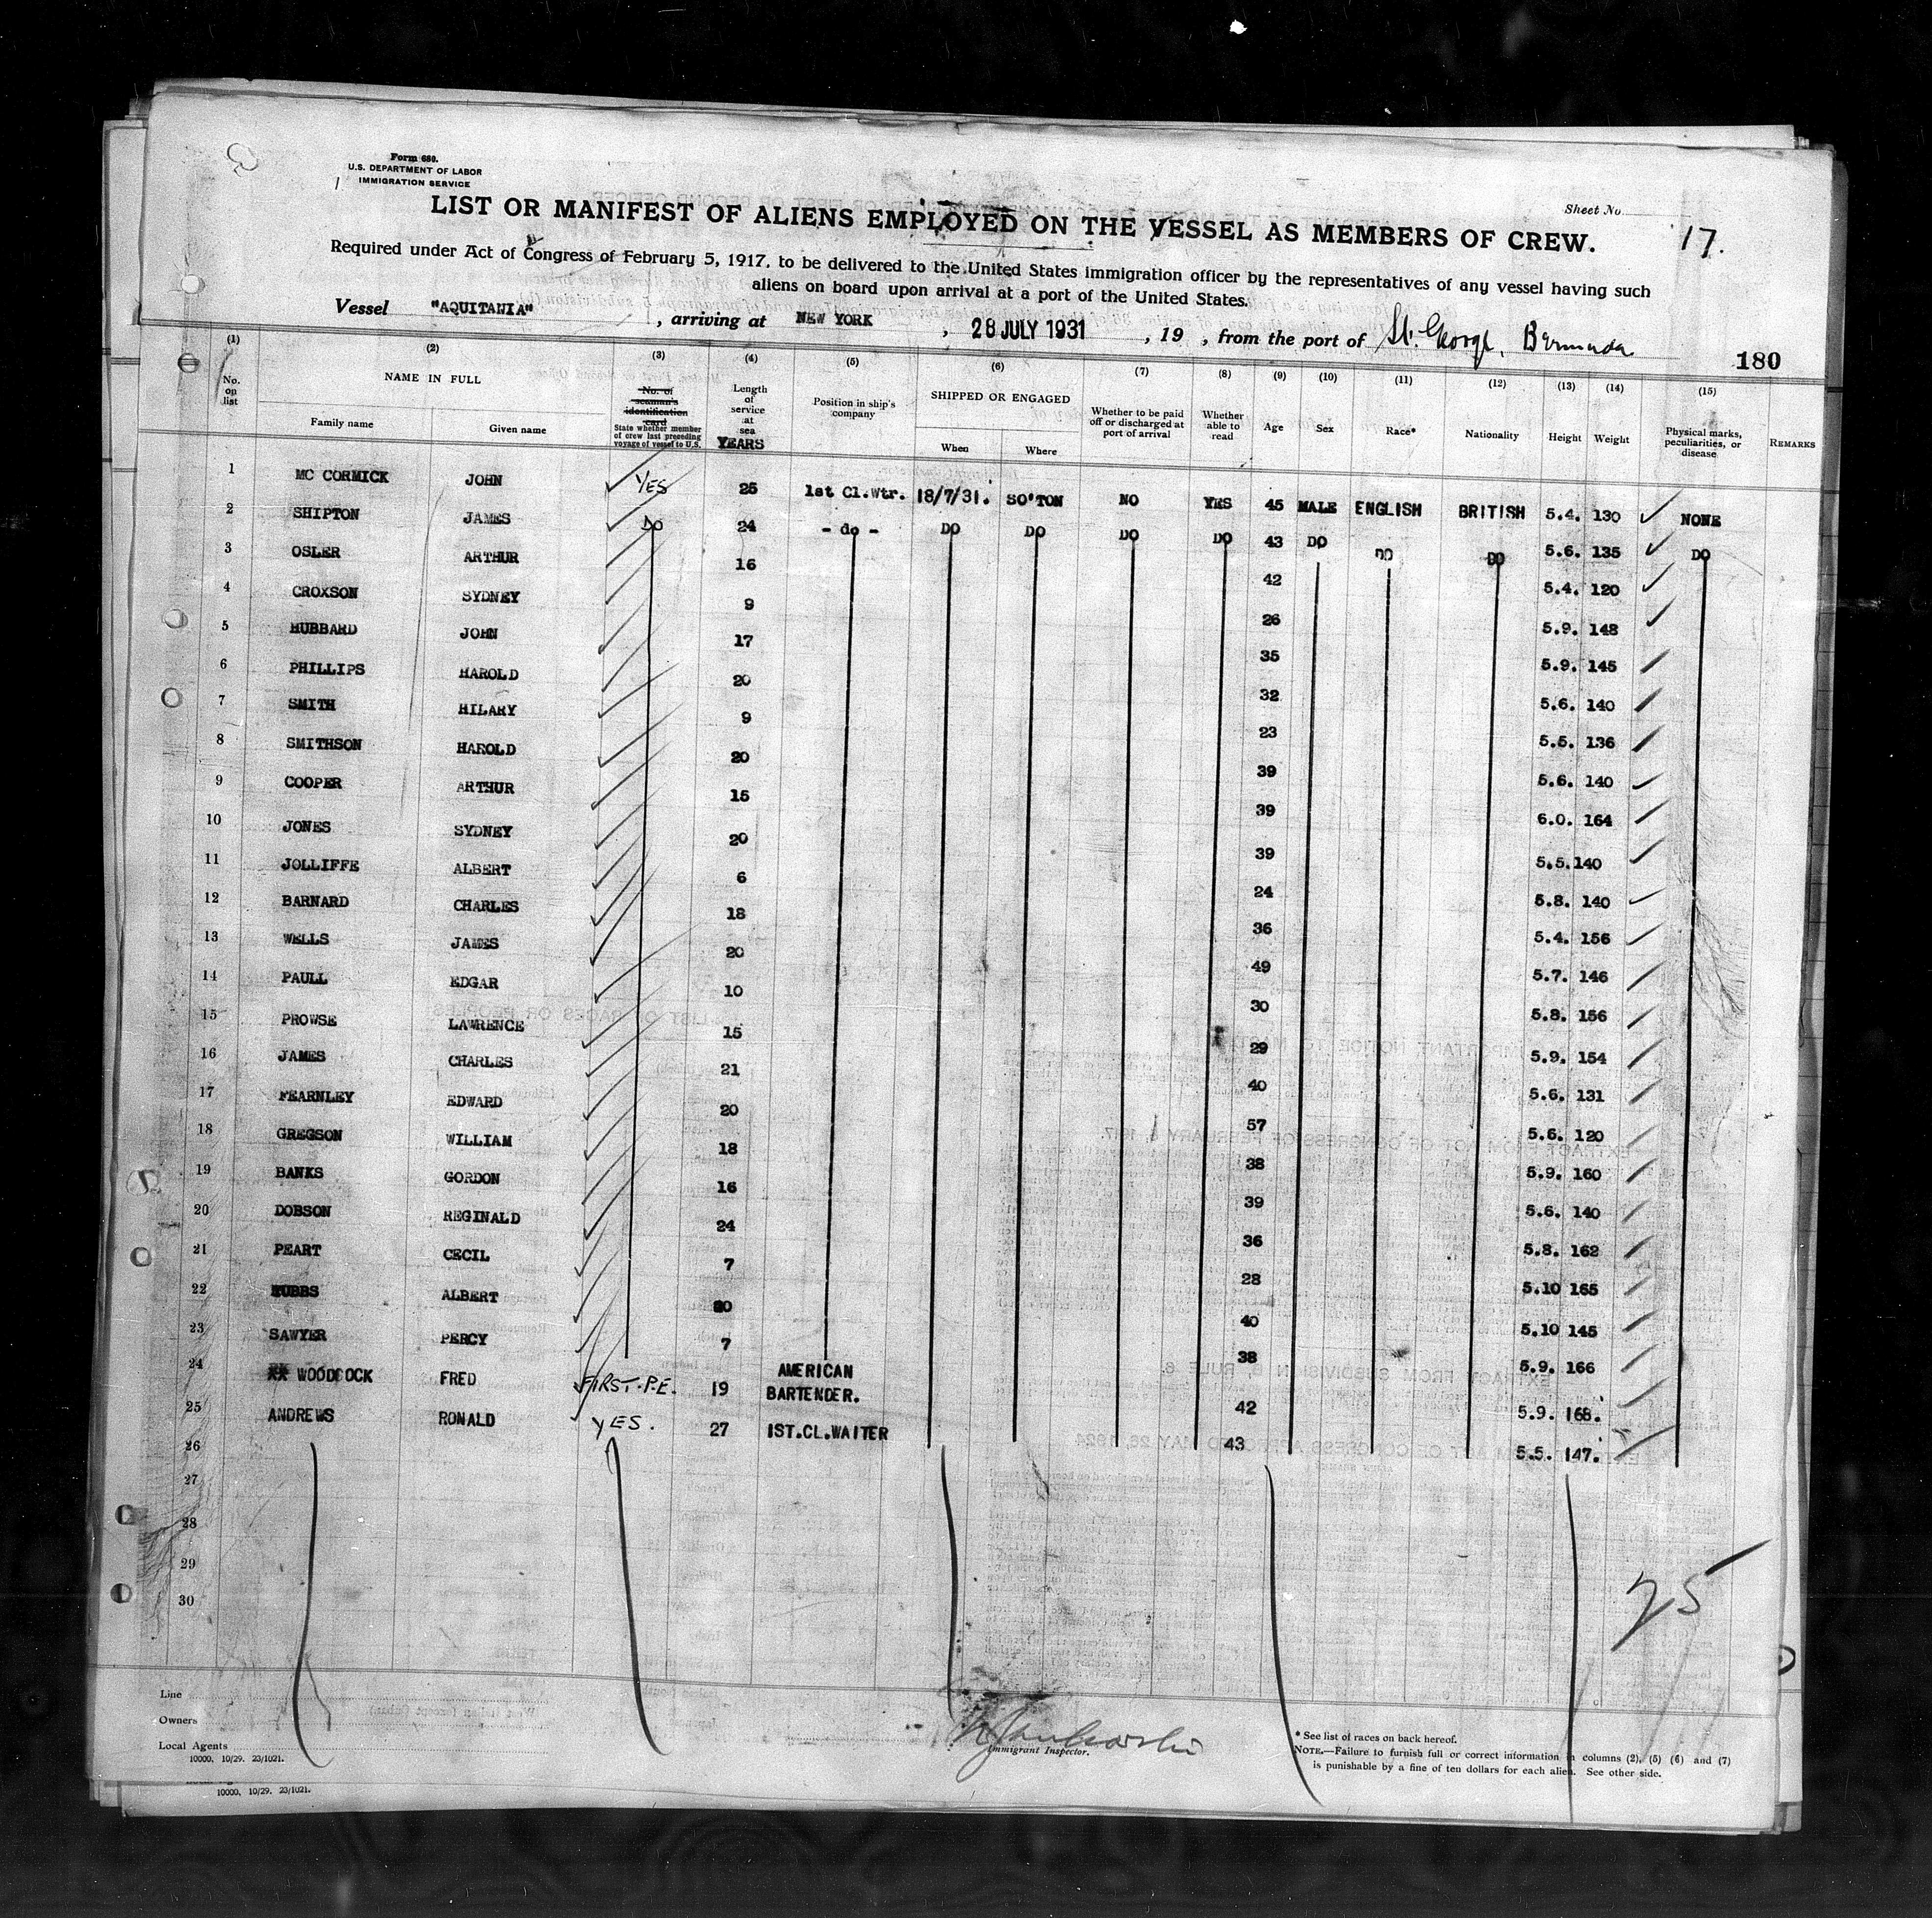 Form 680.
U.S. DEPARTMENT OF LABOR
IMMIGRATION SERVICE
Sheet No.
17.
LIST OR MANIFEST OF ALIENS EMPLOYED ON THE VESSEL AS MEMBERS OF CREW.
Required under Act of Congress of February 5, 1917, to be delivered to the United States immigration officer by the representatives of any vessel having such
aliens on board upon arrival at a port of the United States.
Vessel "AQUITANIA", arriving at NEW YORK, 28 JULY 1931, 19 , from the port of St. George, Bermuda
180
(1) (2) (3) (4) (5) (6) (7) (8) (9) (10) (11) (12) (13) (14) (15)
No. on list NAME IN FULL Family name Given name No. of seaman's identification card State whether member of crew last preceding voyage of vessel to U.S. Length of service at sea YEARS Position in ship's company SHIPPED OR ENGAGED When Where Whether to be paid off or discharged at port of arrival Whether able to read Age Sex Race* Nationality Height Weight Physical marks, peculiarities, or disease REMARKS
1 MC CORMICK JOHN YES 25 1st Cl.Wtr. 18/7/31. SO'TON NO YES 45 MALE ENGLISH BRITISH 5.4. 130 NONE
2 SHIPTON JAMES DO 24 - do - DO DO DO DO 43 DO DO DO 5.6. 135 DO
3 OSLER ARTHUR 16 42 5.4. 120
4 CROXSON SYDNEY 9 26 5.9. 148
5 HUBBARD JOHN 17 35 5.9. 145
6 PHILLIPS HAROLD 20 32 5.6. 140
7 SMITH HILARY 9 23 5.5. 136
8 SMITHSON HAROLD 20 39 5.6. 140
9 COOPER ARTHUR 15 39 6.0. 164
10 JONES SYDNEY 20 39 5.5. 140
11 JOLLIFFE ALBERT 6 24 5.8. 140
12 BARNARD CHARLES 18 36 5.4. 156
13 WELLS JAMES 20 49 5.7. 146
14 PAULL EDGAR 10 30 5.8. 156
15 PROWSE LAWRENCE 15 29 5.9. 154
16 JAMES CHARLES 21 40 5.6. 131
17 FEARNLEY EDWARD 20 57 5.6. 120
18 GREGSON WILLIAM 18 38 5.9. 160
19 BANKS GORDON 16 39 5.6. 140
20 DOBSON REGINALD 24 36 5.8. 162
21 PEART CECIL 7 28 5.10 165
22 ALBERT 40 5.10 145
23 SAWYER PERCY 7 38 5.9. 166
24 WOODCOCK FRED FIRST. P.E. 19 AMERICAN BARTENDER. 42 5.9. 168.
25 ANDREWS RONALD YES. 27 1ST.CL.WAITER 43 5.5. 147.
26
27
28
29
30
25
Line
Owners
Local Agents
10000, 10/29. 23/1021.
Immigrant Inspector.
* See list of races on back hereof.
NOTE.—Failure to furnish full or correct information in columns (2), (5) (6) and (7)
is punishable by a fine of ten dollars for each alien. See other side.
10000, 10/29. 23/1021.